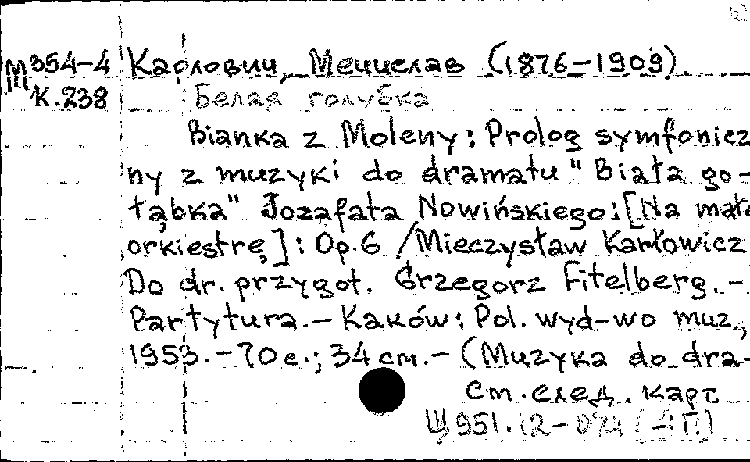 М 354-4 Карлович, Мечислав (1876-1909)
К.238 Белая голубка
Bianka z Moleny: Prolog symfonicz
ny z muzyki do dramatu "Biała go-
łąbka" Jozafata Nowińskiego: [Na małą
orkiestrę]: Op.6 / Mieczysław Karłowicz
Do dr. przygot. Grzegorz Fitelberg. -
Partytura. - Kaków: Pol. wyd-wo muz.,
1953. - 70 с.; 34 см. - (Muzyka do dra-
См. след. карт
Щ951.